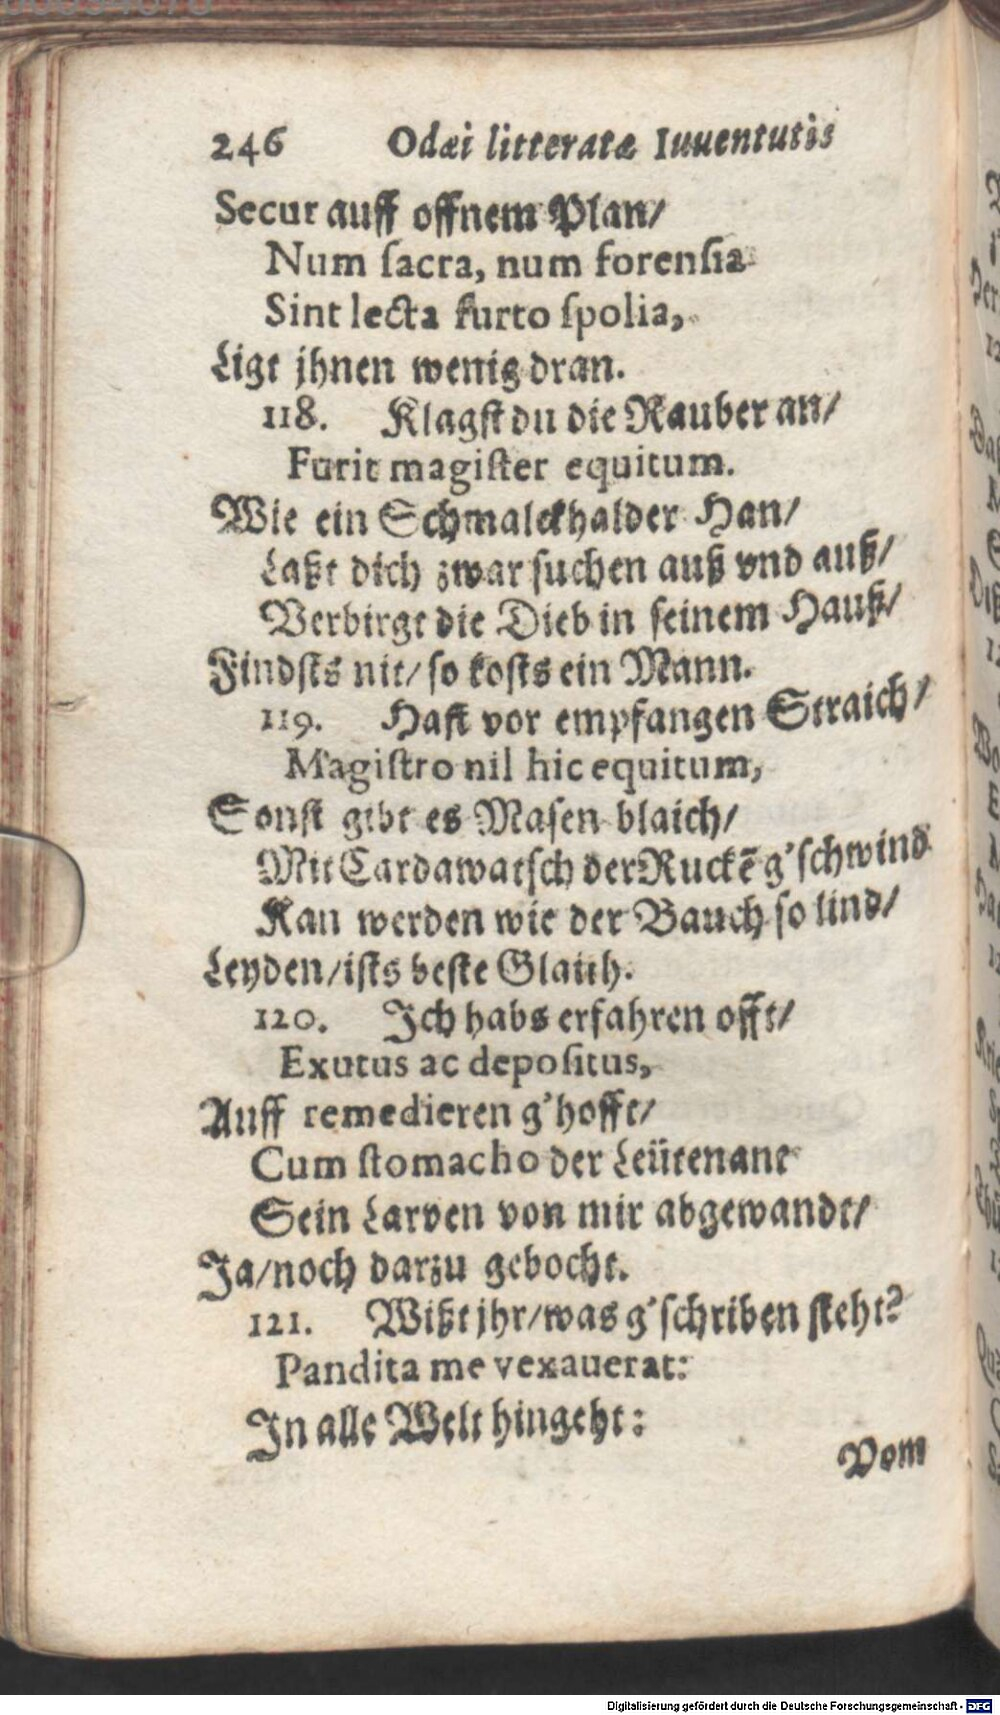 246 Odæi litteratæ Iuuentutis
Secur auff offnem Plan/
Num ſacra, num forenſia
Sint lecta furto ſpolia,
Ligt jhnen wenig dran.
118. Klagſt du die Rauber an/
Furit magiſter equitum.
Wie ein Schmalckhalder Han/
Laßt dich zwar ſuchen auß vnd auß/
Verbirgt die Dieb in ſeinem Hauß/
Findſts nit/ ſo koſts ein Mann.
119. Haſt vor empfangen Straich/
Magiſtro nil hic equitum,
Sonſt gibt es Maſen blaich/
Mit Cardawatſch der Ruckē g'ſchwind
Kan werden wie der Bauch ſo lind/
Leyden/ iſts beſte Glaich.
120. Ich habs erfahren offt/
Exutus ac depoſitus,
Auff remedieren g'hofft/
Cum ſtomacho der Leütenant
Sein Larven von mir abgewandt/
Ja/ noch darzu gebocht.
121. Wißt jhr/ was g'ſchriben ſteht?
Pandita me vexauerat:
In alle Welt hingeht:
Vom
Digitalisierung gefördert durch die Deutsche Forschungsgemeinschaft - DFG